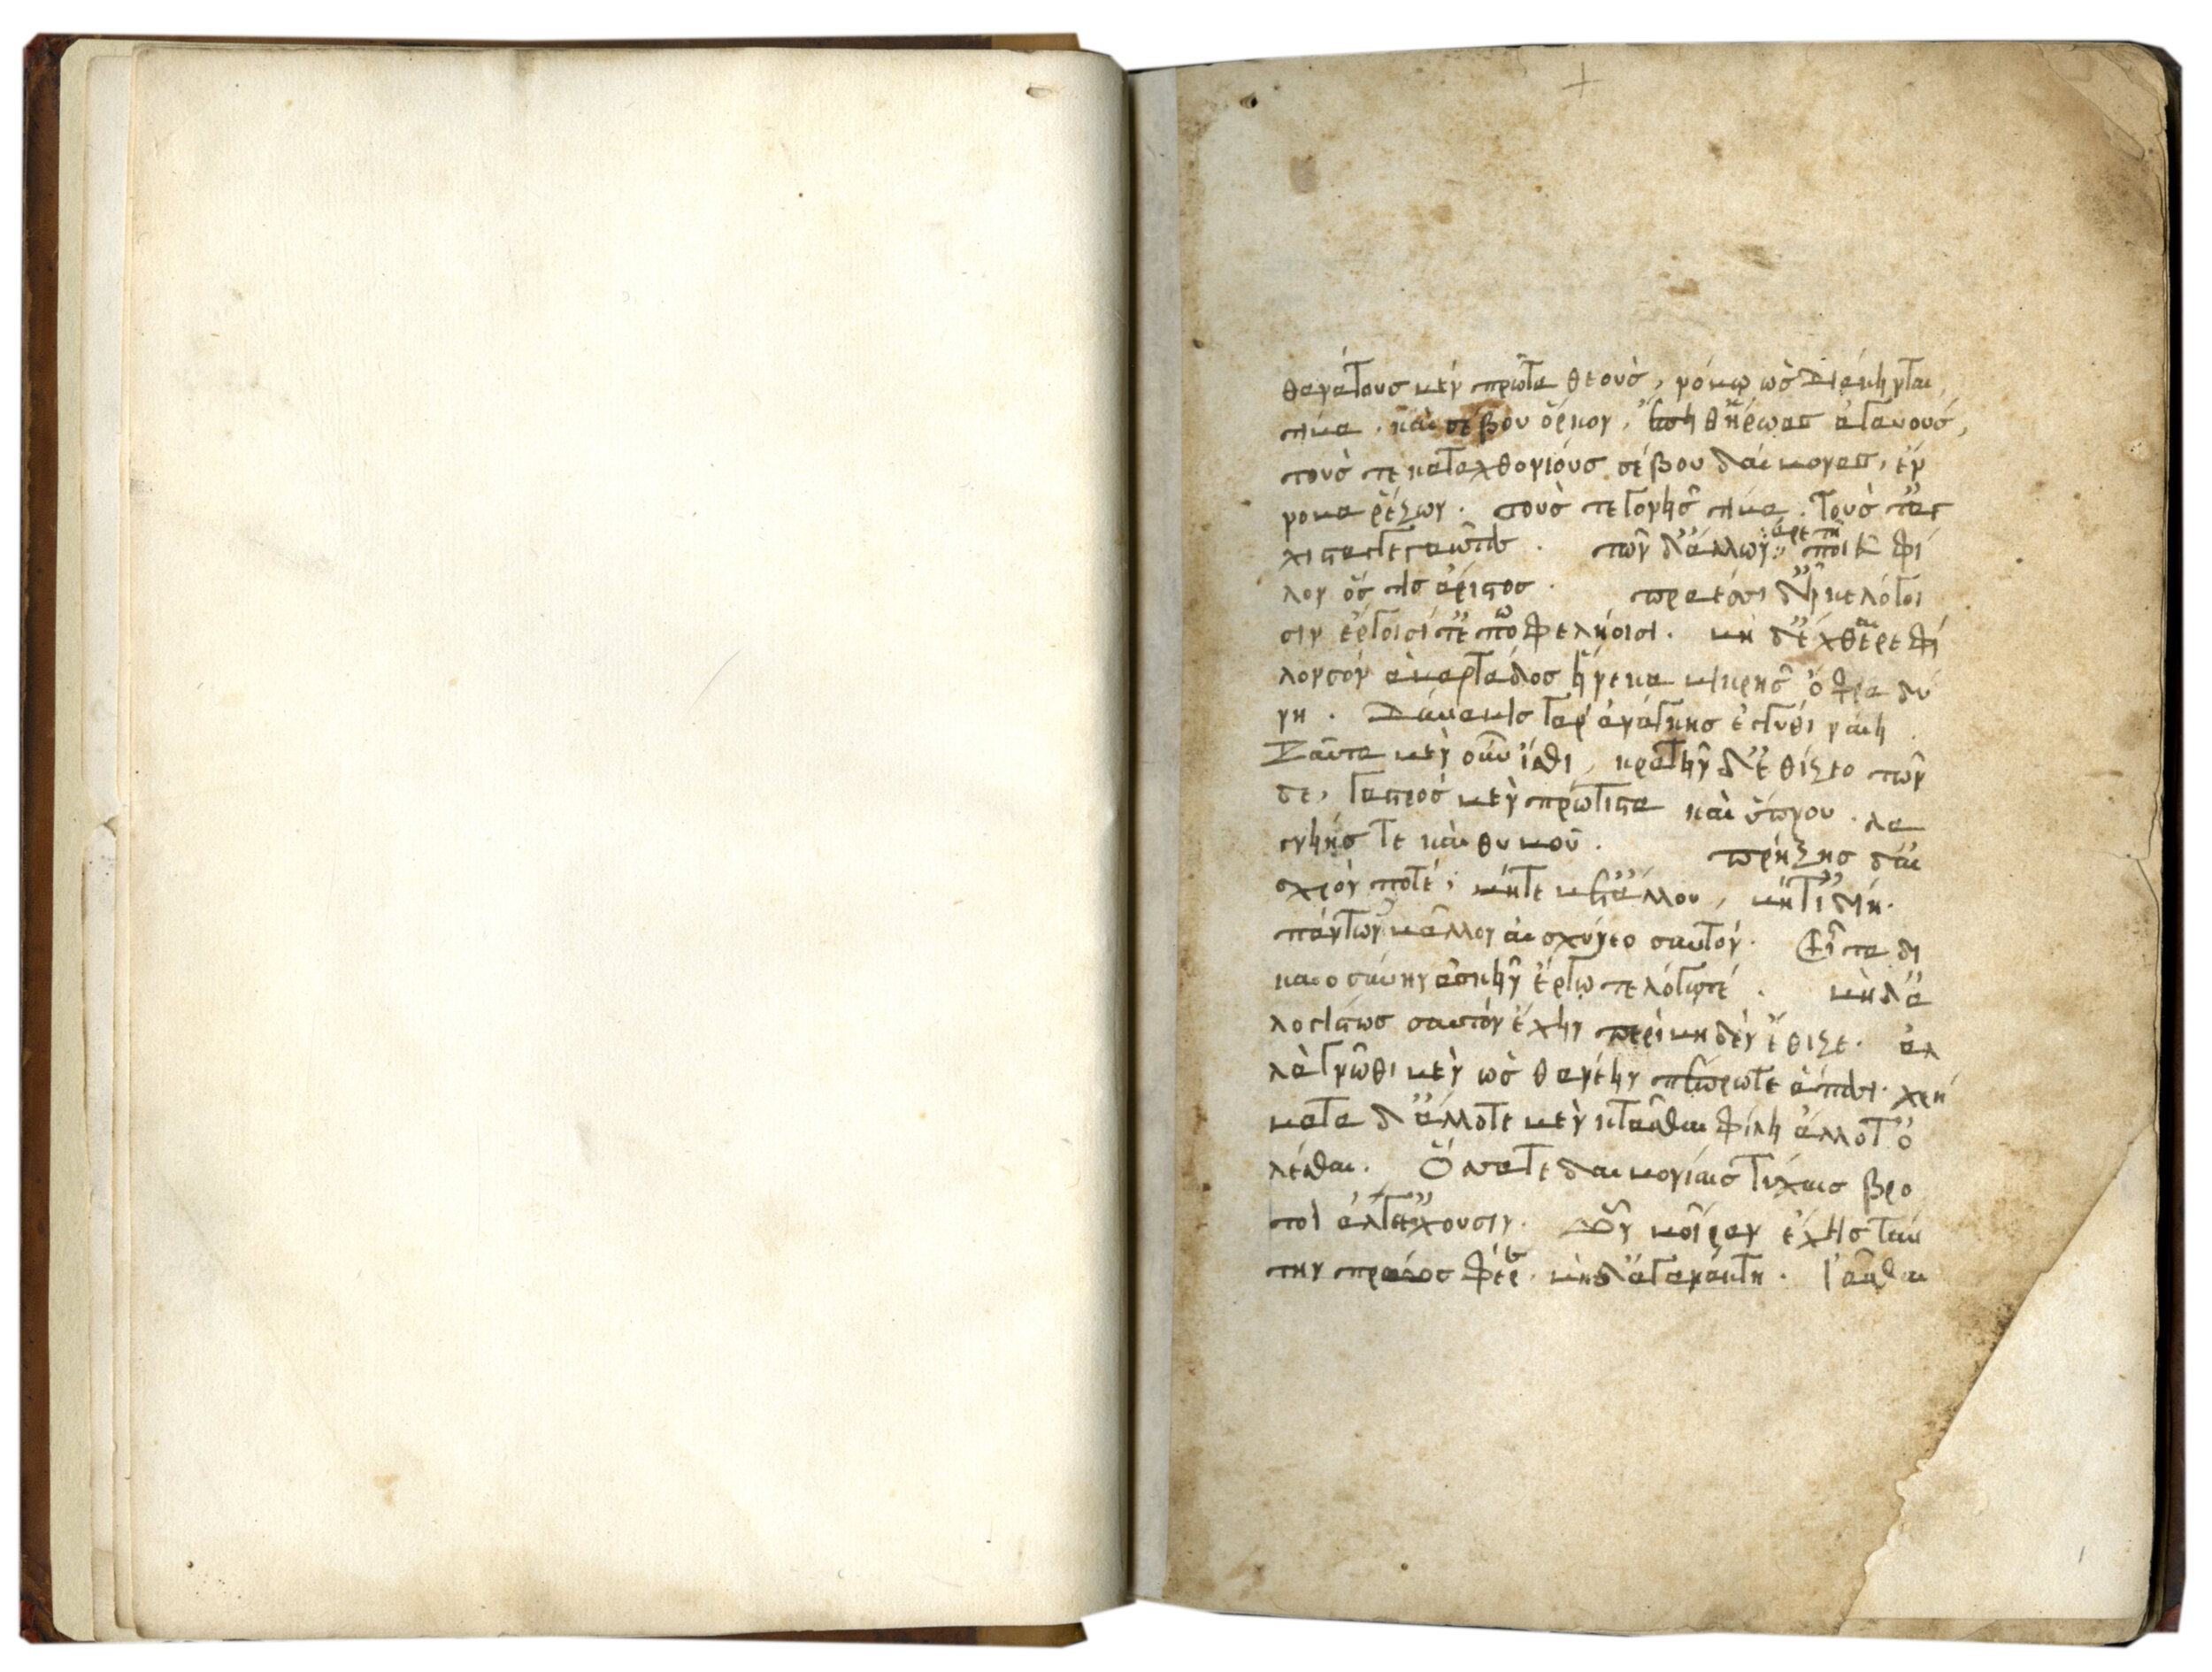 θανάτους μὲν πρῶτα θεοὺς, νόμῳ ὡς διάκηνται
τίμα. καὶ σέβου ὅρκον, ἔπειθ ἥρωας ἀγαυούς,
τούς τε καταχθονίους σέβου δαίμονας, ἔν
νομα ῥέζων. τούς τε γονῆς τίμα. τούς τ ἄγ
χιστ ἐκγεγαῶτας. τῶν δ' ἄλλων ἀρετῆ ποιεῦ φί
λον ὅς τις ἄριστος. πραέσι δ' εἶκε λόγοι
σιν ἔργοισί τ' ἐπωφελήσισι. μὴ δ' ἔχθαιρε φί
λον σὸν ἁμαρτάδος εἵνεκα μικρῆς ὄφρα δύ
νη. δύναμις γὰρ ἀνάγκης ἐγγύθι ναίει.
Ταῦτα μὲν οὕτω ἴσθι, κρατεῖν δ' ἐθίζεο τῶν
δε, γαστρὸς μὲν πρώτιστα καὶ ὕπνου. λα
γνείης τε καὶ θυμοῦ. πρήξης δ' αἰ
σχρόν ποτέ, μήτε μετ' ἄλλου, μήτ' ἰδίη.
πάντων μᾶλλον αἰσχύνεο σαυτόν. Εἶτα δι
καιοσύνην ἀσκεῖν ἔργῳ τε λόγῳ τέ. μὴ δ' ἀ
λογίστως σαυτὸν ἔχειν περὶ μηδὲν ἔθιζε. ἀλ
λὰ γνῶθι μὲν ὡς θανέειν πέπρωται ἅπασι. χρή
ματα δ' ἄλλοτε μὲν κτᾶσθαι φίλει ἄλλοτ' ὀ
λέσθαι. Ὅσσα τε δαιμονίαις τύχαις βρο
τοὶ ἄλγε' ἔχουσιν. ὧν μοῖραν ἔχεις ταύ
την πράως φέρε. μηδ' ἀγανάκτει. ἰᾶσθαι
1